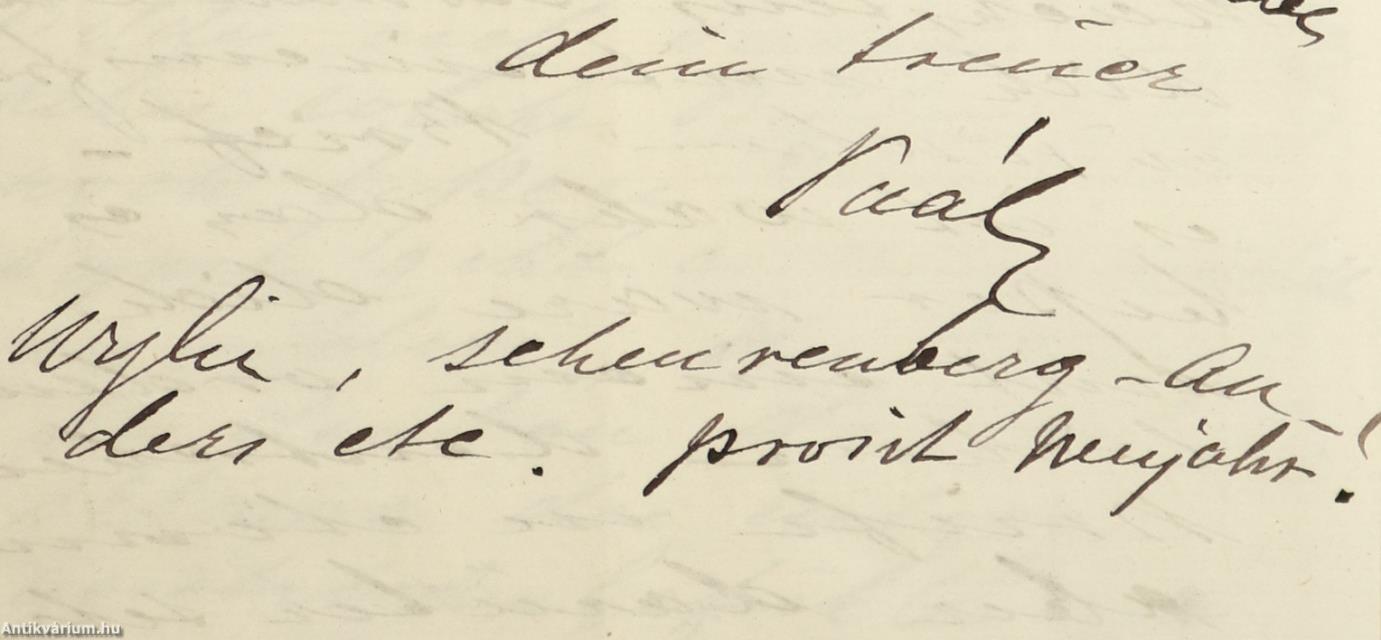 dein treuer
Paál
Wylie, scheurenberg-An
ders etc. prosit Neujahr!
Antikvárium.hu